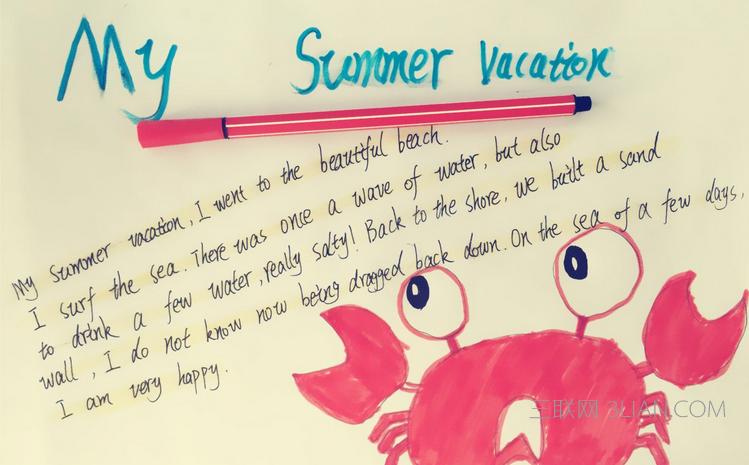 My Summer vacation
My summer vacation, I went to the beautiful beach.
I surf the sea. There was once a wave of water, but also
to drink a few water, really salty! Back to the shore, we built a sand
wall, I do not know now being dragged back down. On the sea of a few days,
I am very happy.
三联网 3LIAN.COM